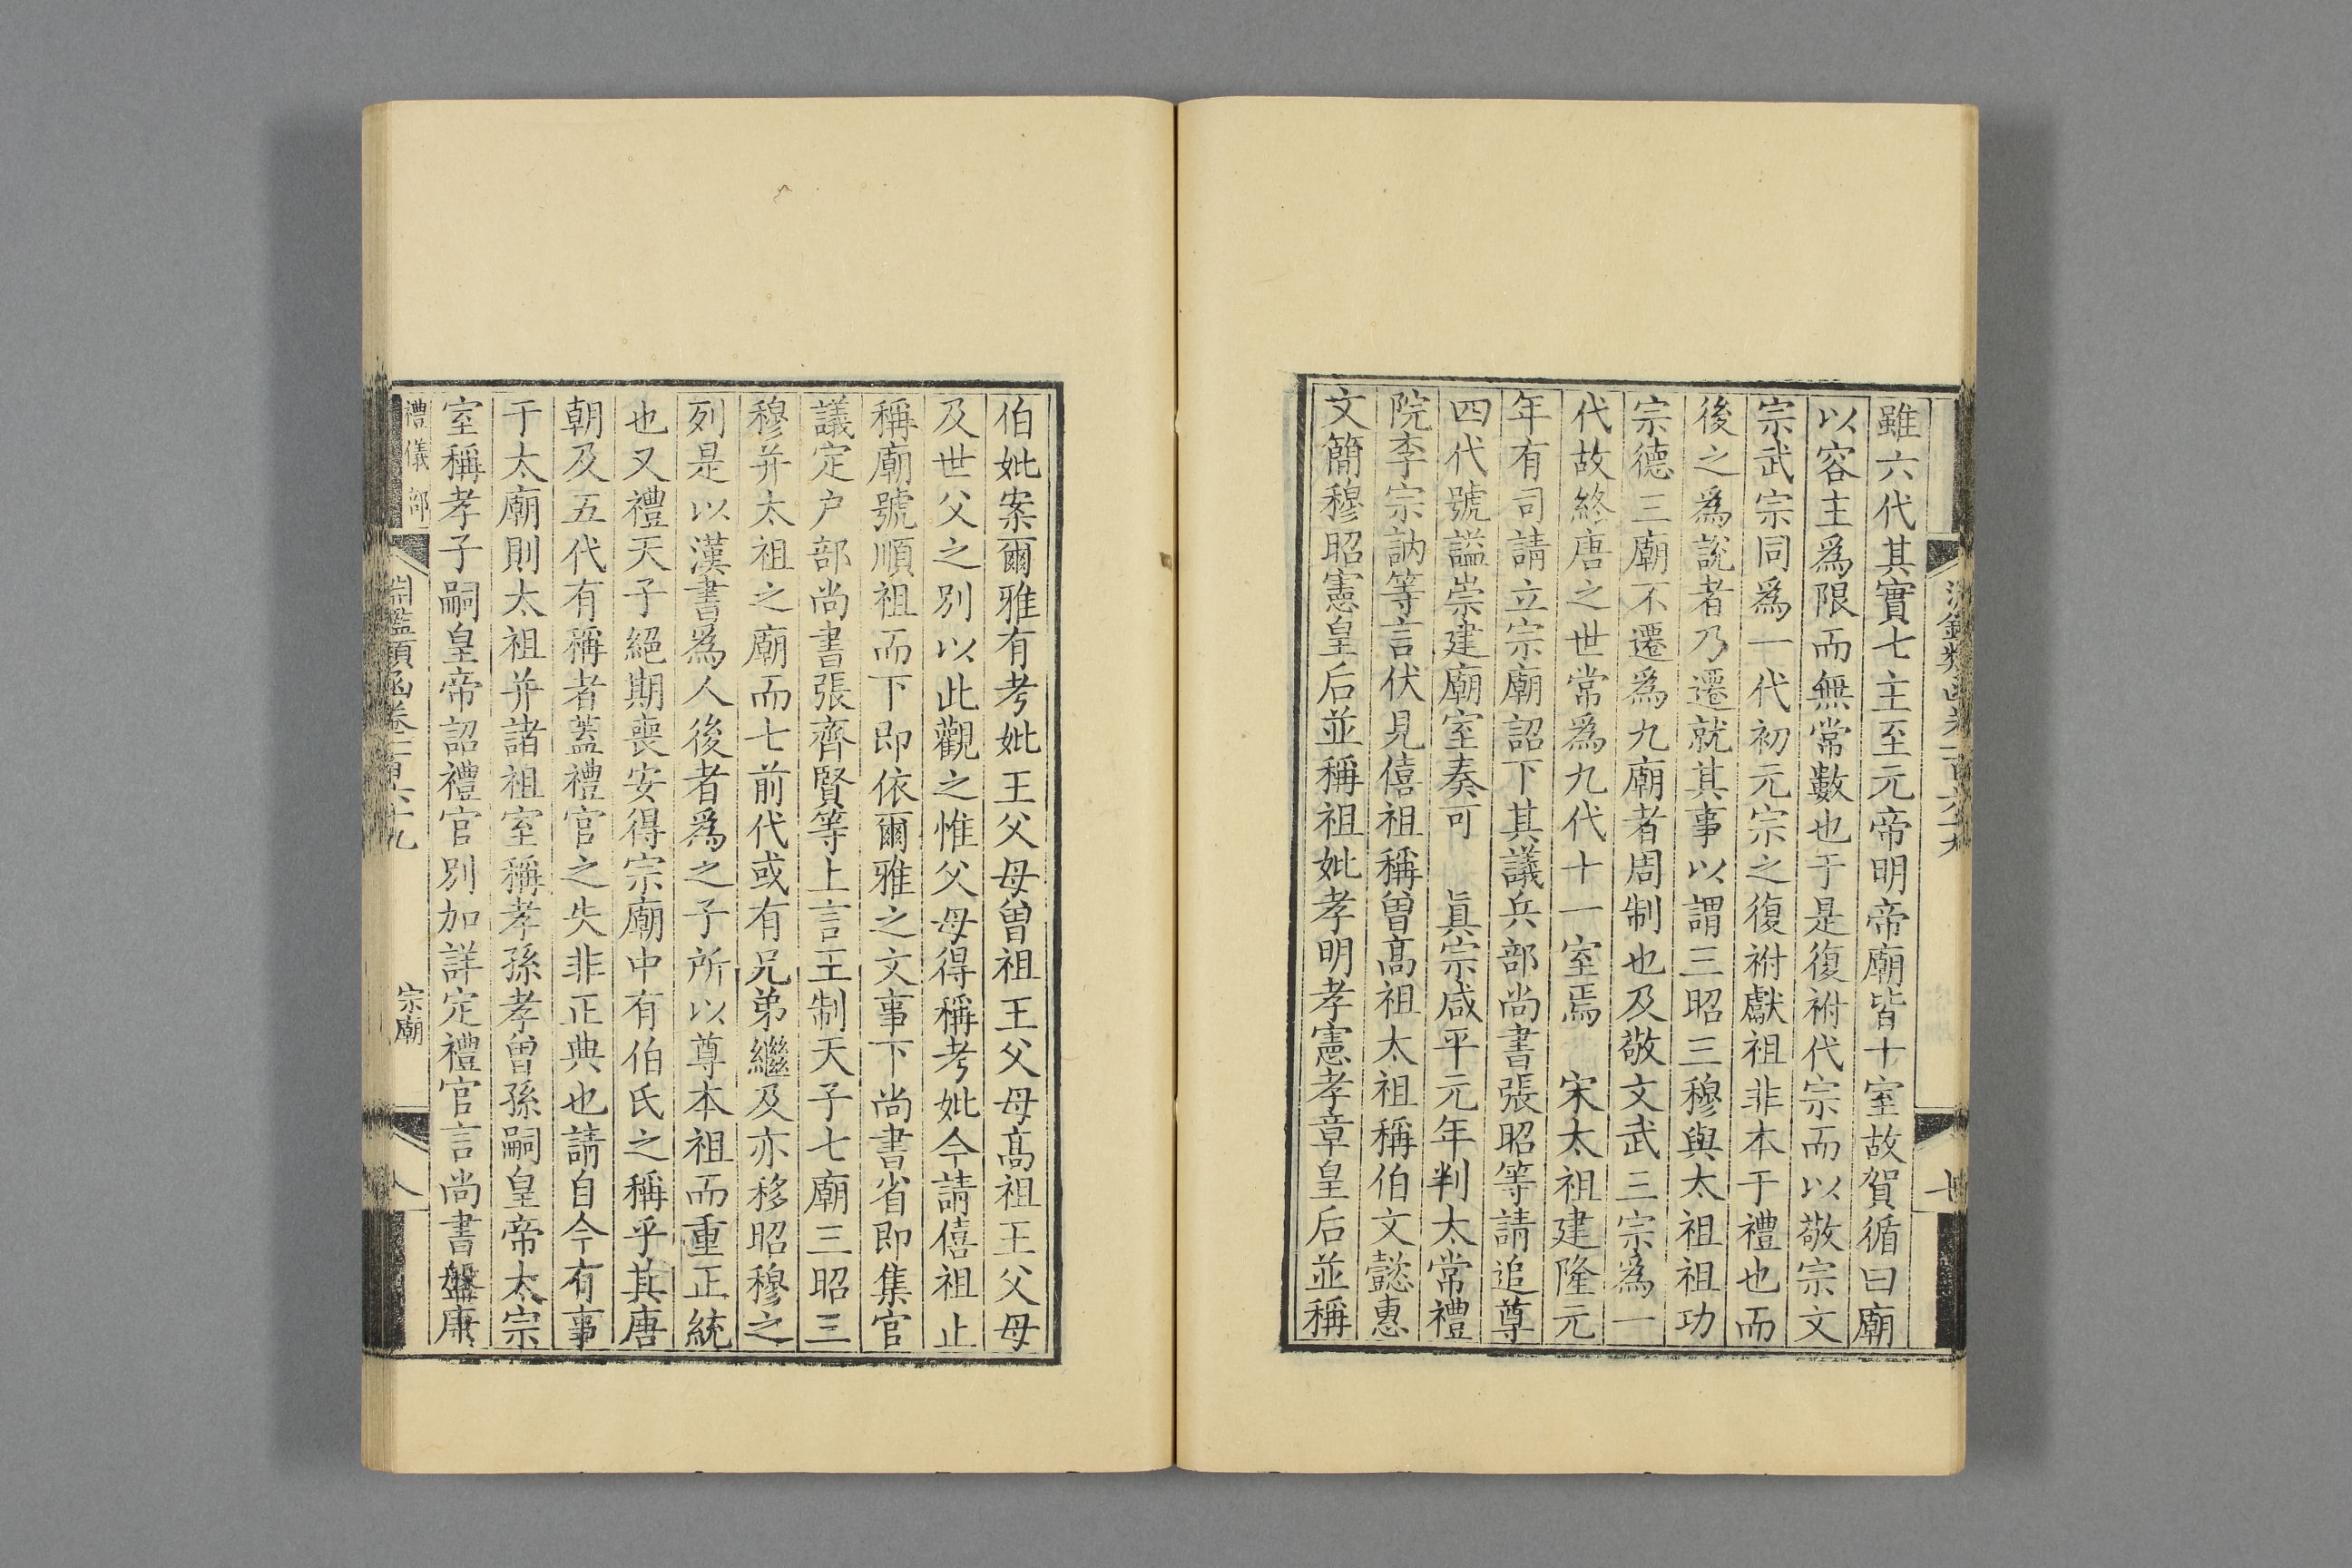 雖六代其實七主至元帝明帝廟皆十室故賀循曰廟
以容主爲限而無常數也于是復祔代宗而以敬宗文
宗武宗同爲一代初元宗之復祔獻祖非本于禮也而
後之爲說者乃遷就其事以謂三昭三穆與太祖祖功
宗德三廟不遷爲九廟者周制也及敬文武三宗爲一
代故終唐之世常爲九代十一室焉　宋太祖建隆元
年有司請立宗廟詔下其議兵部尚書張昭等請追尊
四代號謚崇建廟室奏可　真宗咸平元年判太常禮
院李宗訥等言伏見僖祖稱曾高祖太祖稱伯文懿惠
文簡穆昭憲皇后並稱祖妣孝明孝憲孝章皇后並稱
伯妣案爾雅有考妣王父母曾祖王父母高祖王父母
及世父之別以此觀之惟父母得稱考妣今請僖祖止
稱廟號順祖而下即依爾雅之文事下尚書省即集官
議定户部尚書張齊賢等上言王制天子七廟三昭三
穆并太祖之廟而七前代或有兄弟繼及亦移昭穆之
列是以漢書爲人後者爲之子所以尊本祖而重正統
也又禮天子絕期喪安得宗廟中有伯氏之稱乎其唐
朝及五代有稱者蓋禮官之失非正典也請自今有事
于太廟則太祖并諸祖室稱孝孫孝曾孫嗣皇帝太宗
室稱孝子嗣皇帝詔禮官別加詳定禮官言尚書盤庚
禮儀部
淵鑑類函卷一百六十九
宗廟
八